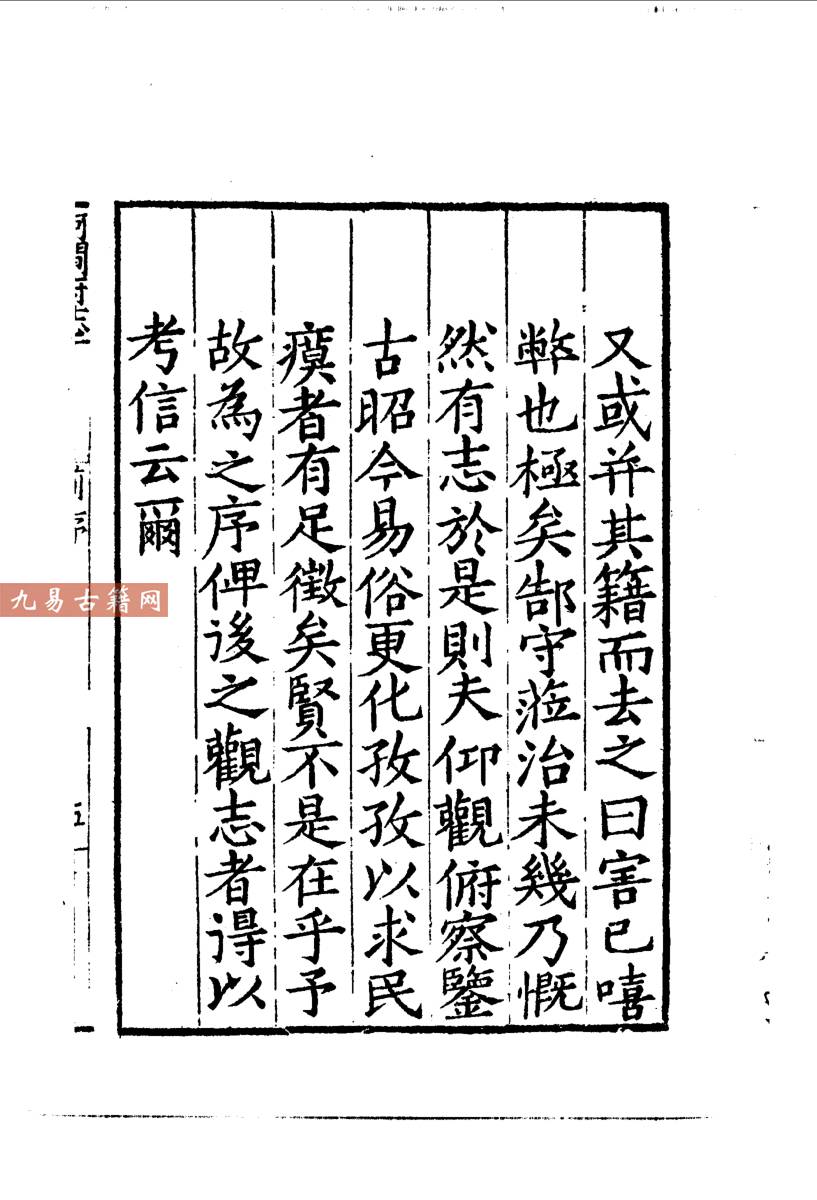 又或并其籍而去之曰害已嘻
弊也極矣郜守蒞治未幾乃慨
然有志於是則夫仰觀俯察鑒
古昭今易俗更化孜孜以求民
瘼者有足徵矣賢不是在乎予
故為之序俾後之觀志者得以
考信云爾
河間府志
五
九易古籍网